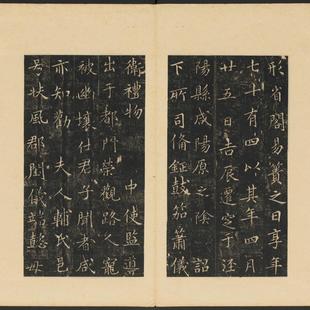 形省閣易簀之日享年
七十有四以其年四月
廿五日吉辰遷窆于涇
陽縣咸陽原之陰詔
下所司備鉦鼓笳簫儀
衛禮物 中使監導
出于都門榮觀路人寵
被幽壤仕君子聞者咸
亦知勸 夫人輔氏邑
号扶風郡閨儀端懿母